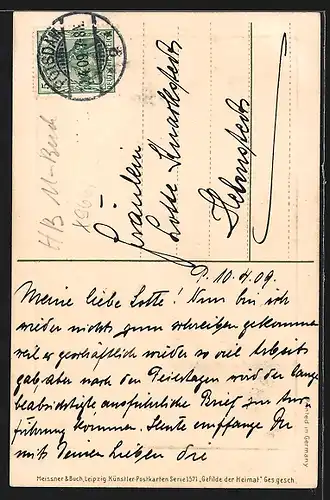 POTSDAM
5
H/B M-Buch
Fräulein
Lotte
Helmstedt
P. 10.4.09.
Meine liebe Lotte! Nun bin ich
wieder nicht zum schreiben gekommen
weil es geschäftlich wieder so viel Arbeit
gab, aber nach den Feiertagen wird der lange
beabsichtigte ausführliche Brief zur Aus-
führung kommen. Heute empfange Du
mit Deinen Lieben die
Printed in Germany
Meissner & Buch, Leipzig. Künstler-Postkarten Serie 1571. „Gefilde der Heimat“ Ges. gesch.